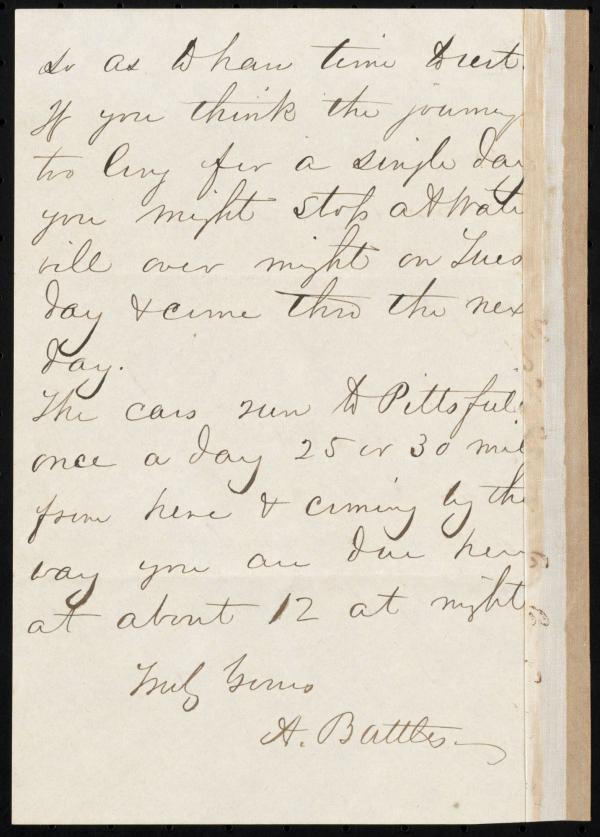 so as to have time to rest.
If you think the journey
too long for a single day
you might stop at Wate
vill over night on Tues
day & come thro the nex
day.
The cars run to Pittsfiel
once a day 25 or 30 mil
from here & coming by the
way you are due here
at about 12 at night
Truly Yours
A. Battles